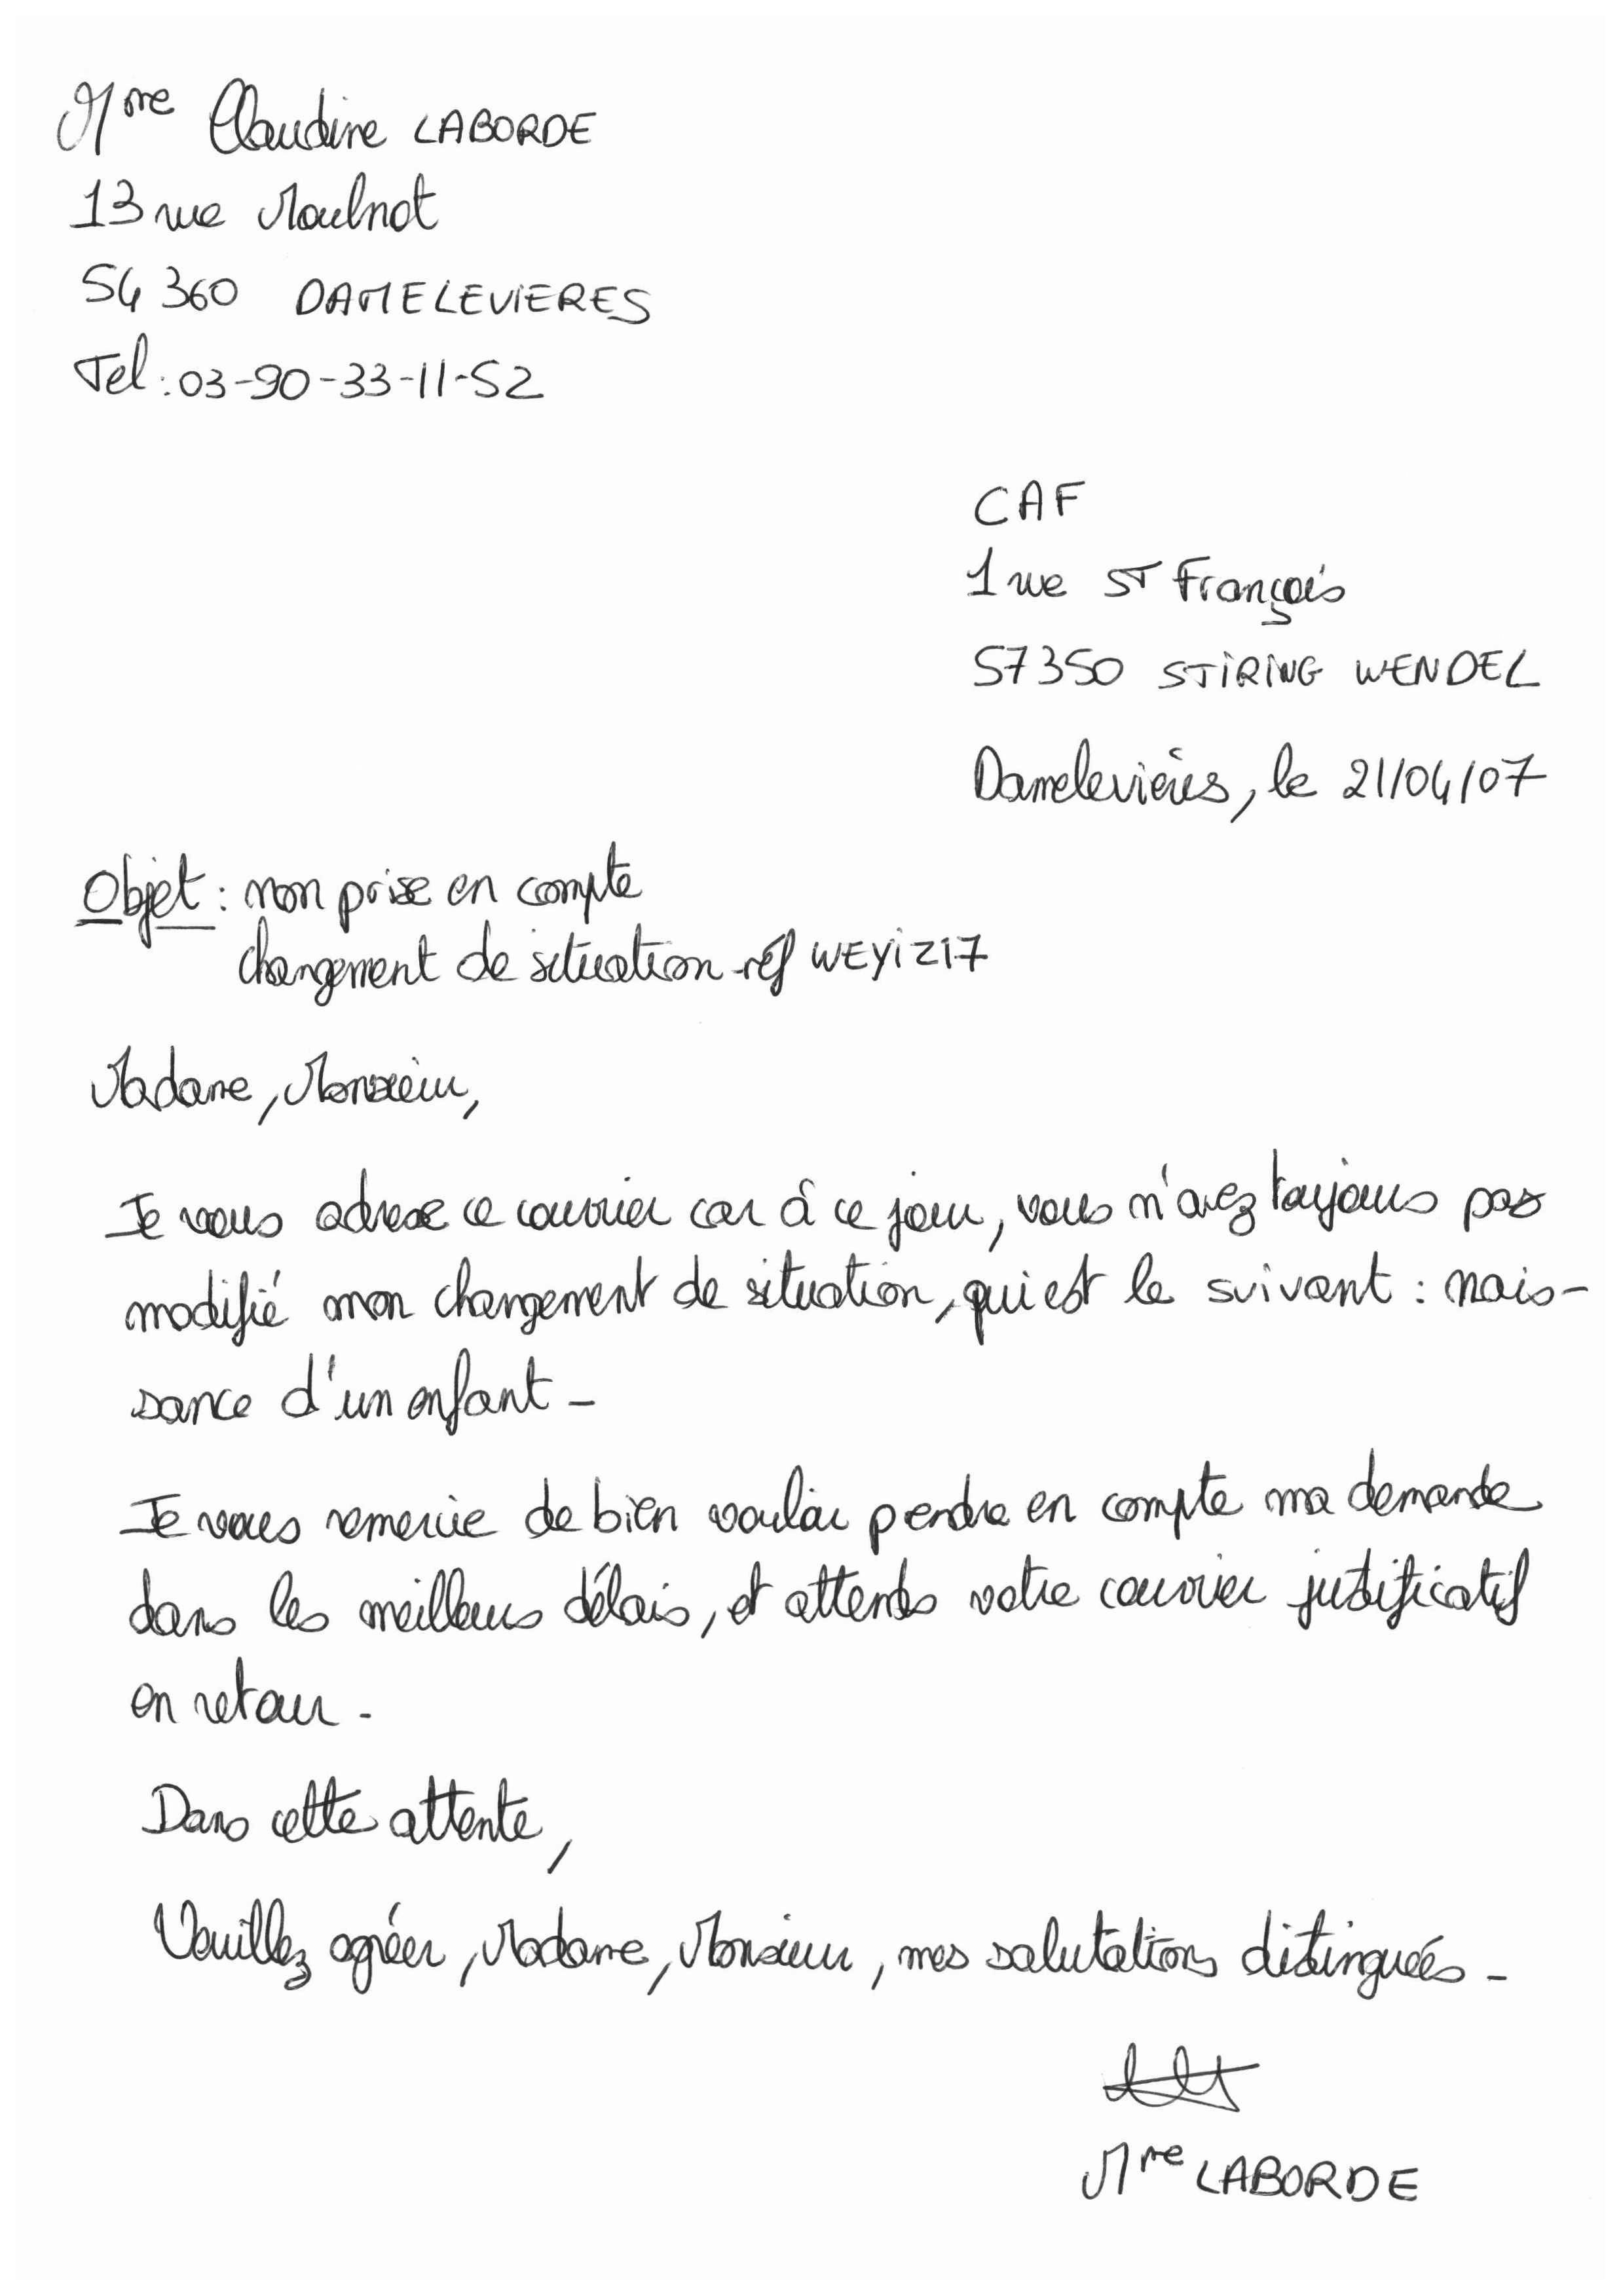 Mme Claudine LABORDE
13 rue Moulnot
54 360 DAMELEVIERES
Tel : 03-90-33-11-52
CAF
1 rue ST François
57350 STIRING WENDEL
Damelevières, le 21/04/07
Objet : non prise en compte
changement de situation réf WEYIZ17
Madame, Monsieur,
Je vous adresse ce courrier car à ce jour, vous n'avez toujours pas
modifié mon changement de situation, qui est le suivant : nais-
sance d'un enfant -
Je vous remercie de bien vouloir pendre en compte ma demande
dans les meilleurs délais, et attends votre courrier justificatif
en retour -
Dans cette attente,
Veuillez agréer, Madame, Monsieur, mes salutations distinguées -
Mme LABORDE